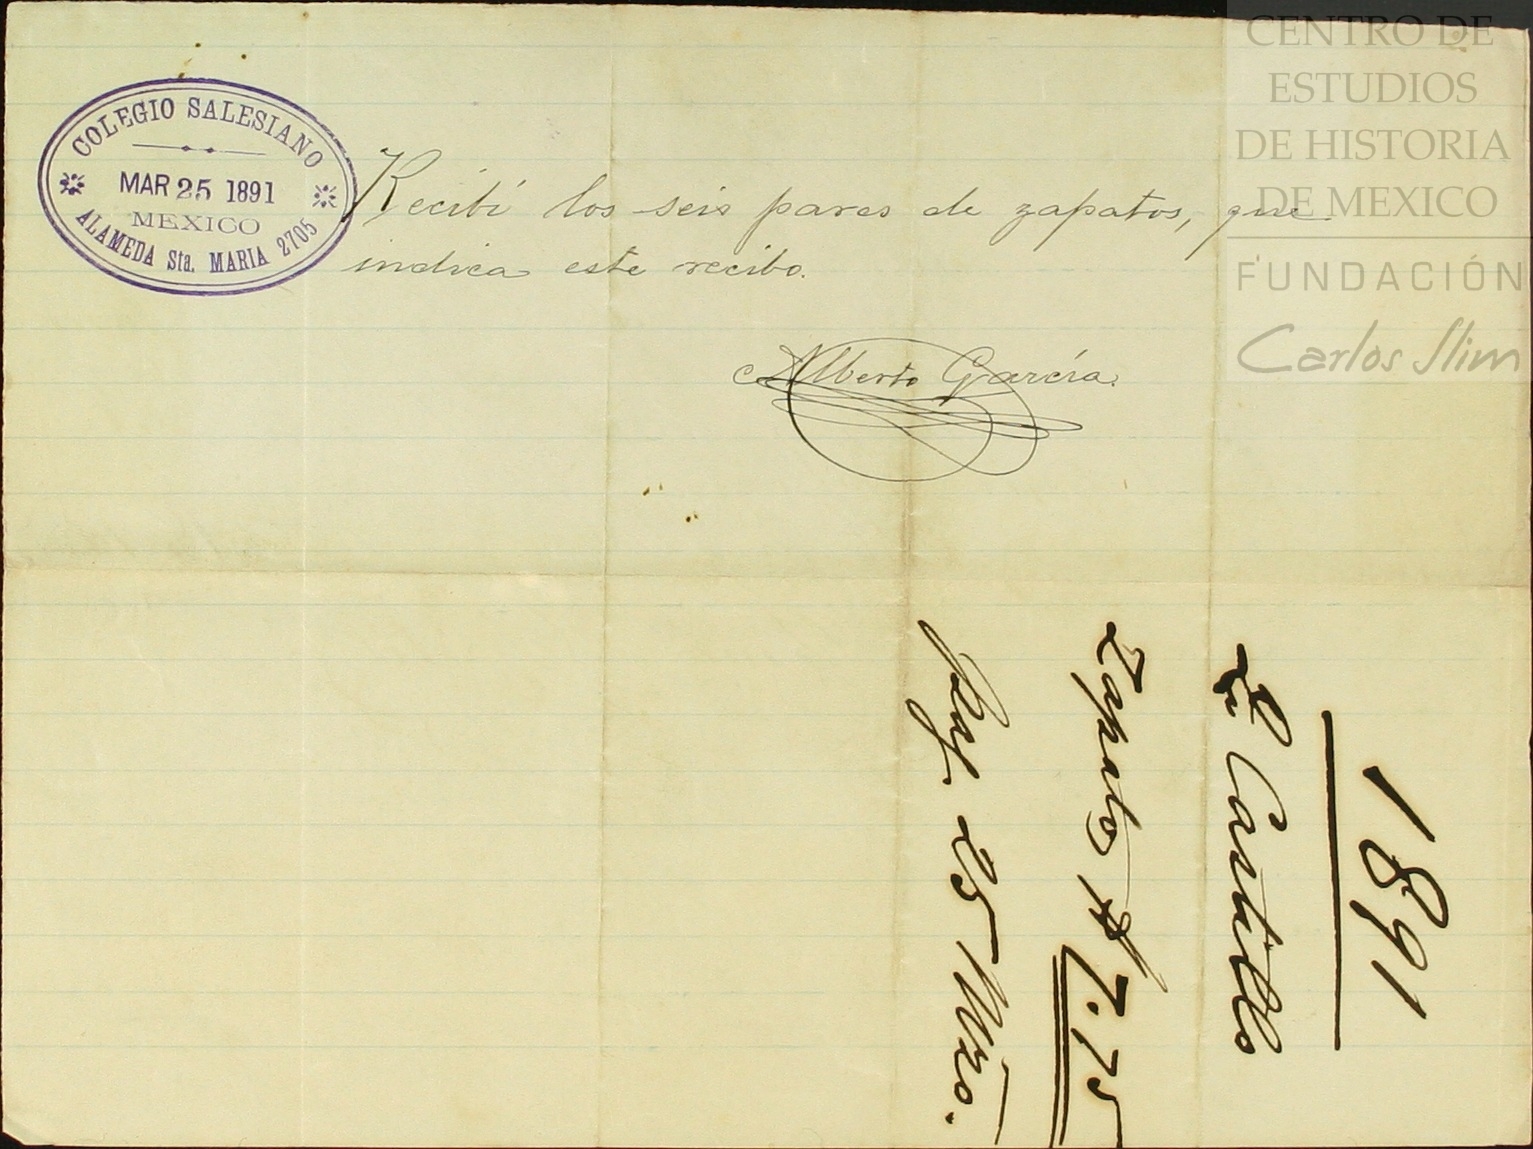 CENTRO DE
ESTUDIOS
DE HISTORIA
DE MEXICO
FUNDACIÓN
Carlos Slim
COLEGIO SALESIANO
MAR 25 1891
MEXICO
ALAMEDA Sta. MARIA 2705
Recibí los seis pares de zapatos, que
indica este recibo.
Alberto García.
1891
Castillo
Zapatos $ 7.75
Pag. 25 Mzo.